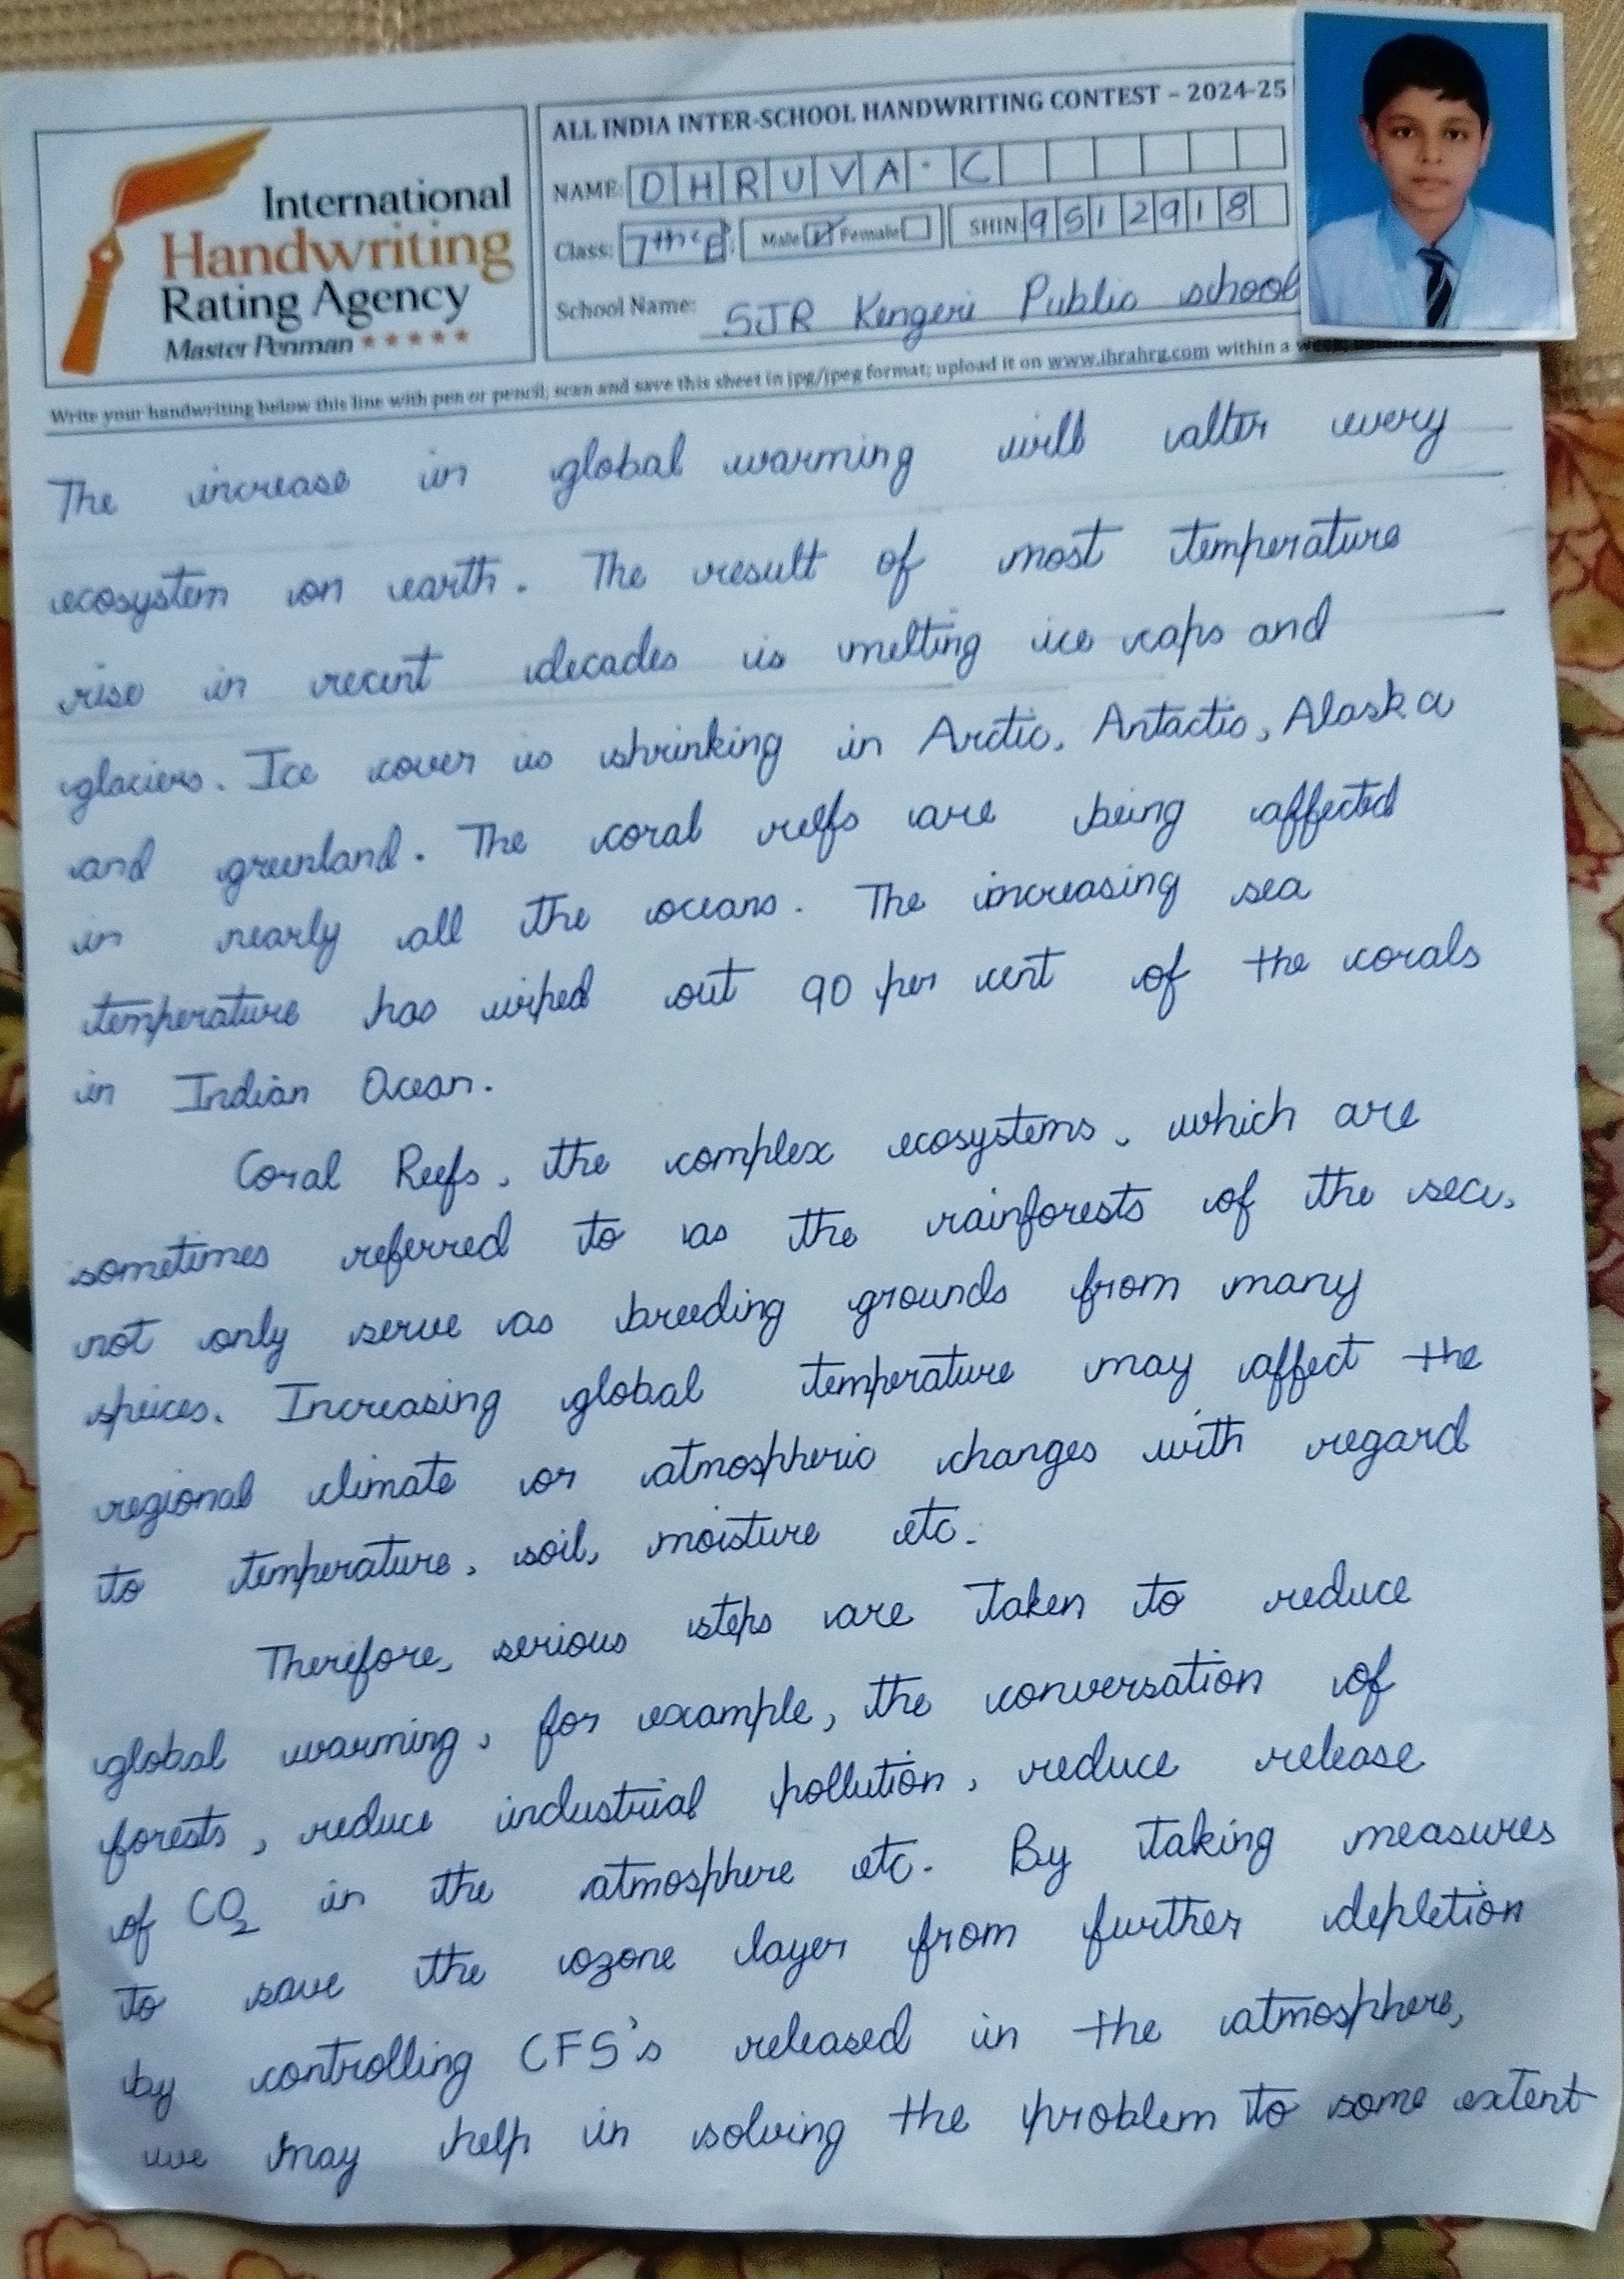 ALL INDIA INTER-SCHOOL HANDWRITING CONTEST – 2024-25
International
Handwriting
Rating Agency
Master Penman
NAME: DHRUVA. C
Class: 7th 'E' Male Female SHIN: 9512918
School Name: SJR Kengeri Public school
Write your handwriting below this line with pen or pencil; scan and save this sheet in jpg/jpeg format; upload it on www.ihrahrg.com within a
The increase in global warming will alter every
ecosystem on earth. The result of most temperature
rise in recent decades is melting ice caps and
glaciers. Ice cover is shrinking in Arctic, Antactic, Alaska
and greenland. The coral relfs are being affected
in nearly all the oceans. The increasing sea
temperature has wiped out 90 per cent of the corals
in Indian Ocean.
Coral Reefs, the complex ecosystems, which are
sometimes referred to as the rainforests of the sea,
not only serve as breeding grounds from many
speices. Increasing global temperature may affect the
regional climate or atmospheric changes with regard
to temperature, soil, moisture etc.
Therefore, serious steps are taken to reduce
global warming, for example, the conversation of
forests, reduce industrial pollution, reduce release
of CO2 in the atmosphere etc. By taking measures
to save the ozone layer from further depletion
by controlling CFS's released in the atmosphere,
we may help in solving the problem to some extent